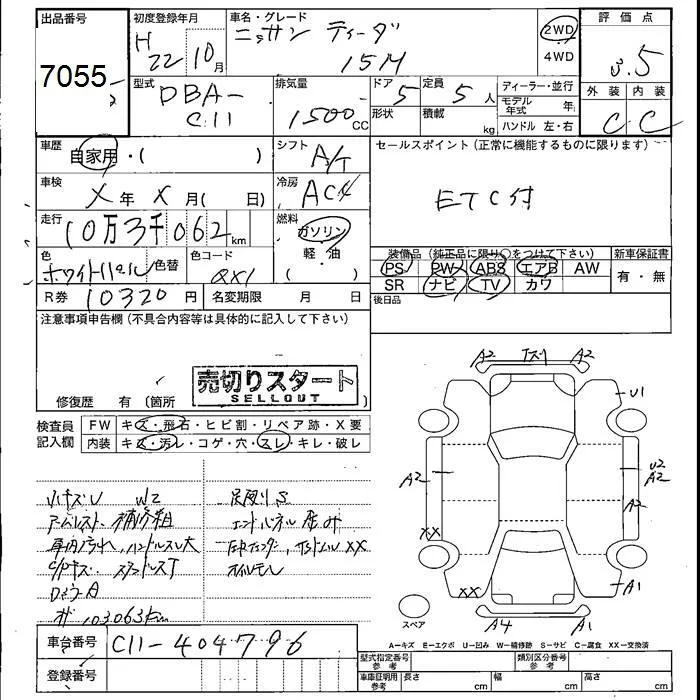 出品番号
7055
初度登録年月
H22 10月
車名・グレード
ニッサン ティーダ
15M
2WD
4WD
評価点
3.5
外装 内装
C C
型式
DBA-
C11
排気量
1500 CC
ドア 5
形状
定員 5 人
積載 kg
ディーラー・並行
モデル年式 年
ハンドル 左・右
車歴
自家用・( )
シフト
A/T
セールスポイント (正常に機能するものに限ります)
ETC付
車検
X 年 X 月( 日)
冷房
AC
走行
10万3千062 km
燃料
ガソリン
(軽・油)
色
ホワイトパール
色替
色コード
QX1
装備品 (純正品に限り○をつけて下さい)
PS PW ABS エアB AW
SR ナビ TV カワ
新車保証書
有・無
R券 10320 円
名変期限 月 日
後日品
注意事項申告欄 (不具合内容等は具体的に記入して下さい)
売切りスタート
SELLOUT
修復歴 有 〔箇所 〕
検査員
記入欄
FW キズ・飛石・ヒビ割・リペア跡・X要
内装 キズ・汚レ・コゲ・穴・スレ・キレ・破レ
小キズ U W2
アームレスト 補修粗
車内汚れ、ハンドルスレ大
103063km
A2 A2
U1
A2
U2
A2
A2
XX
XX
A1
A4 A1
スペア
A=キズ E=エクボ U=凹み W=補修跡 S=サビ C=腐食 XX=交換済
車台番号
C11-404796
登録番号
型式指定番号 参考
類別区分番号 参考
車庫証明用 参考
長さ cm
幅 cm
高さ cm